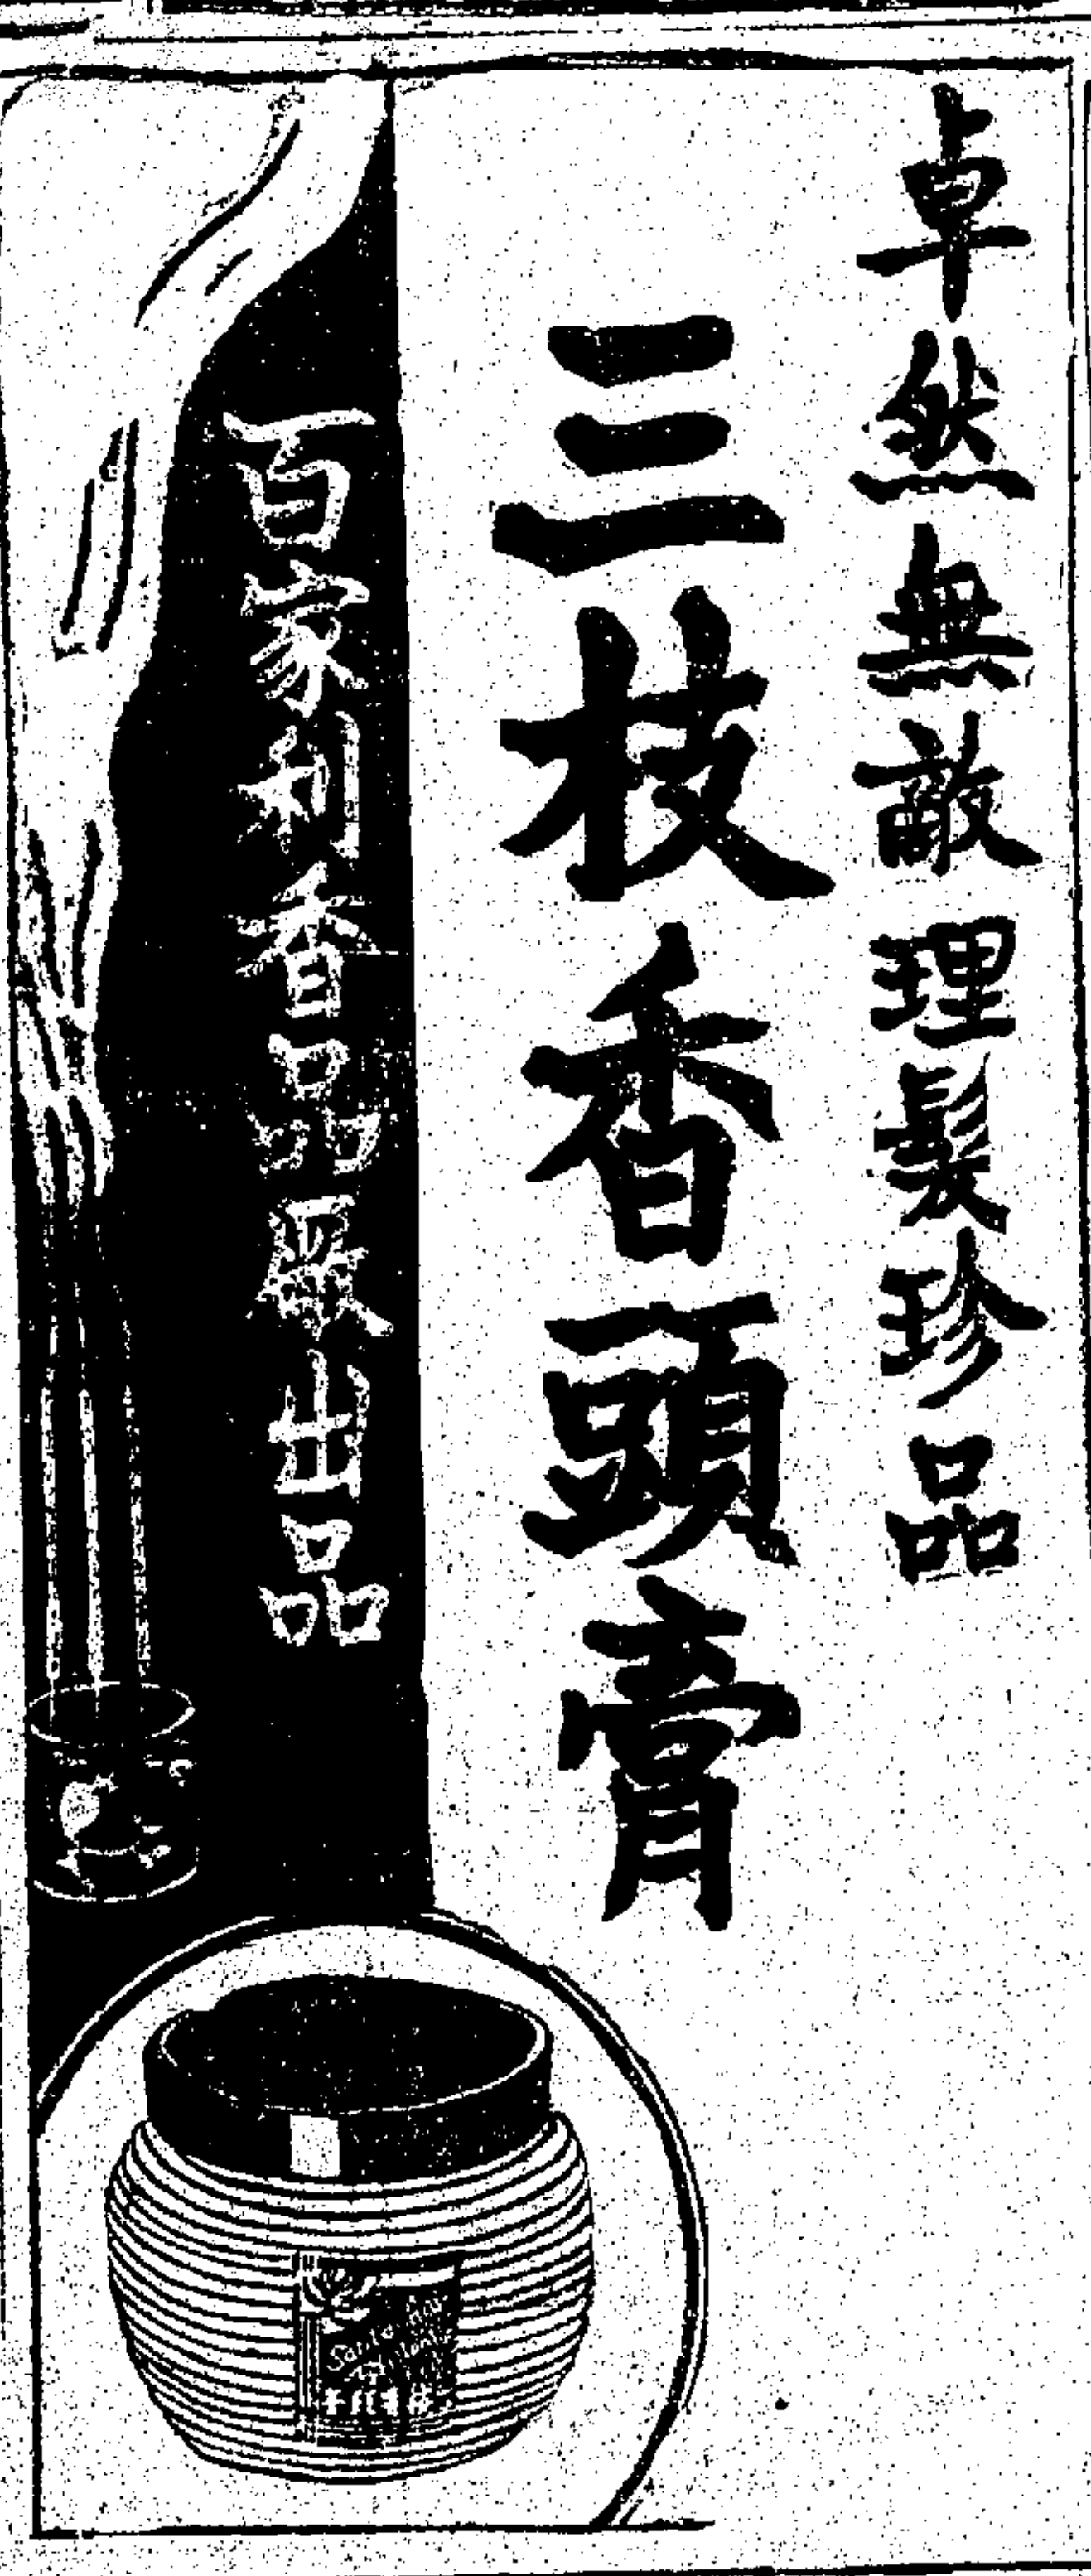 卓然無敵理髮珍品
三枝香頭膏
百家利香品厰出品